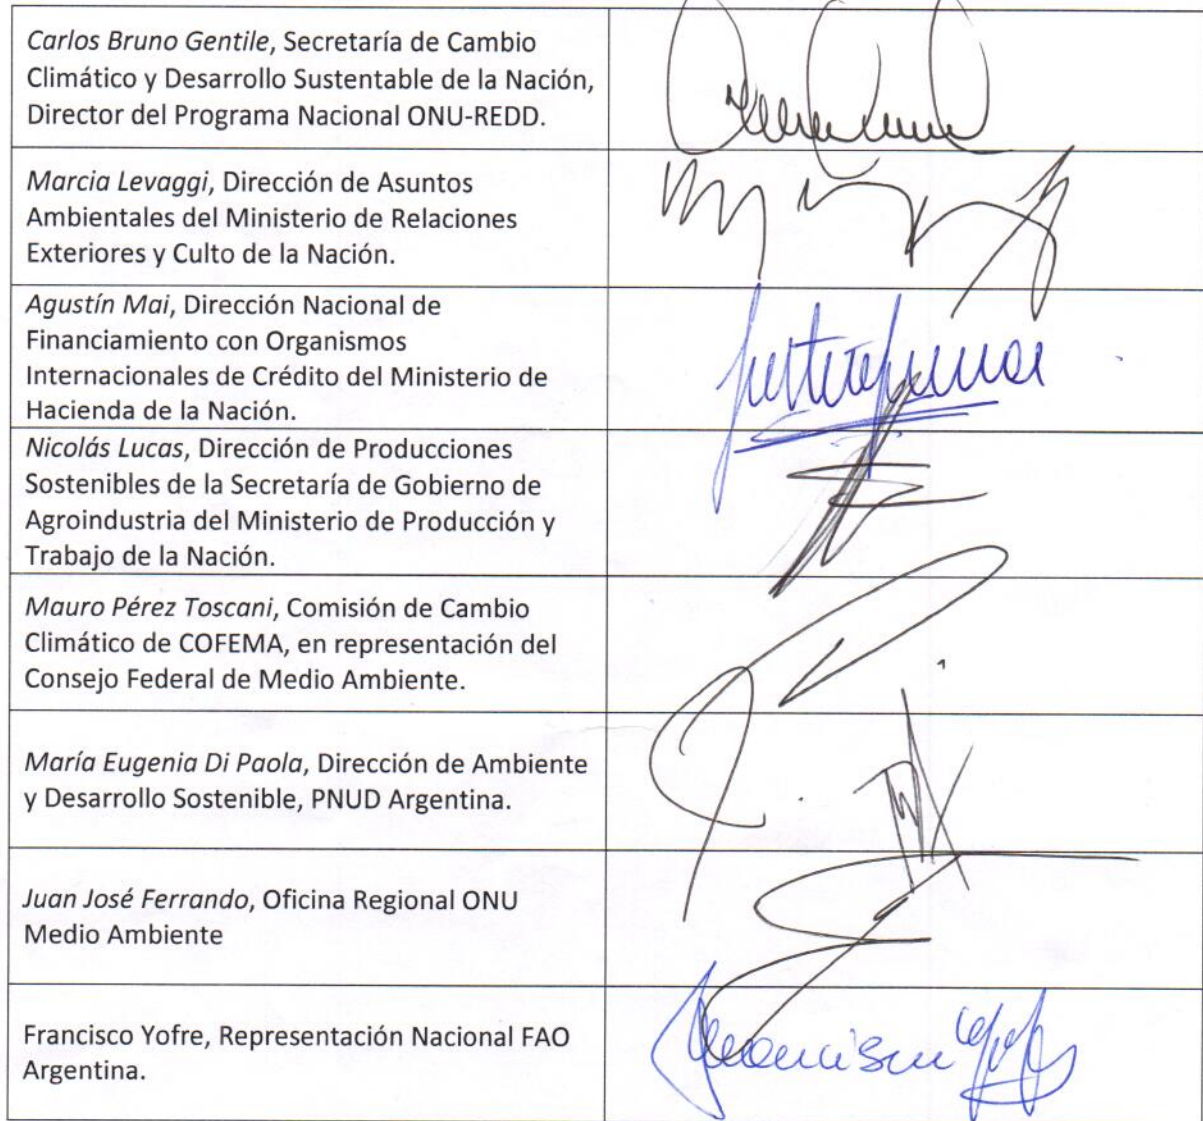 Carlos Bruno Gentile, Secretaría de Cambio
Climático y Desarrollo Sustentable de la Nación,
Director del Programa Nacional ONU-REDD.
Marcia Levaggi, Dirección de Asuntos
Ambientales del Ministerio de Relaciones
Exteriores y Culto de la Nación.
Agustín Mai, Dirección Nacional de
Financiamiento con Organismos
Internacionales de Crédito del Ministerio de
Hacienda de la Nación.
Nicolás Lucas, Dirección de Producciones
Sostenibles de la Secretaría de Gobierno de
Agroindustria del Ministerio de Producción y
Trabajo de la Nación.
Mauro Pérez Toscani, Comisión de Cambio
Climático de COFEMA, en representación del
Consejo Federal de Medio Ambiente.
María Eugenia Di Paola, Dirección de Ambiente
y Desarrollo Sostenible, PNUD Argentina.
Juan José Ferrando, Oficina Regional ONU
Medio Ambiente
Francisco Yofre, Representación Nacional FAO
Argentina.